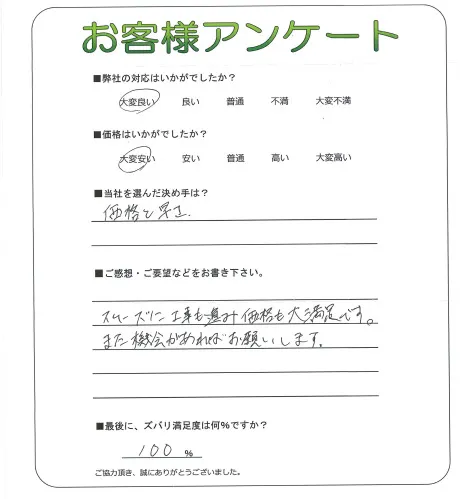 お客様アンケート
■弊社の対応はいかがでしたか？
大変良い 良い 普通 不満 大変不満
■価格はいかがでしたか？
大変安い 安い 普通 高い 大変高い
■当社を選んだ決め手は？
価格と早さ
■ご感想・ご要望などをお書き下さい。
スムーズに工事も進み価格も大満足です。
また機会があればお願いします。
■最後に、ズバリ満足度は何％ですか？
100 ％
ご協力頂き、誠にありがとうございました。